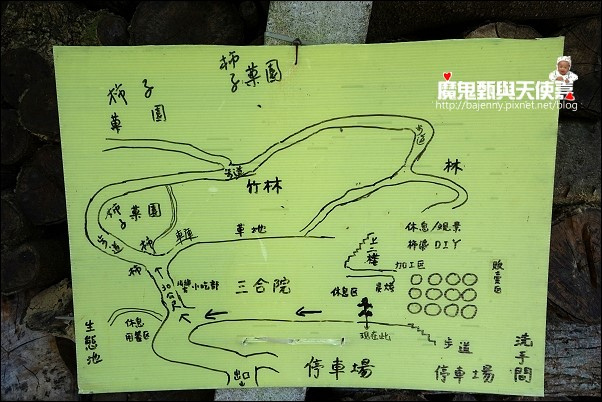 柿子菓園
柿子菓園
魔鬼甄與天使嘉
http://bajenny.pixnet.net/blog
步道
步道
竹林
林
柿子菓園
步道
柿
車庫
草地
休息/觀景
柿染DIY
上二樓
加工區
販賣區
柿
30公尺
小吃部
三合院
休息區
烘烤
生態池
休息
用餐區
現在此
步道
停車場
停車場
洗手間
出口